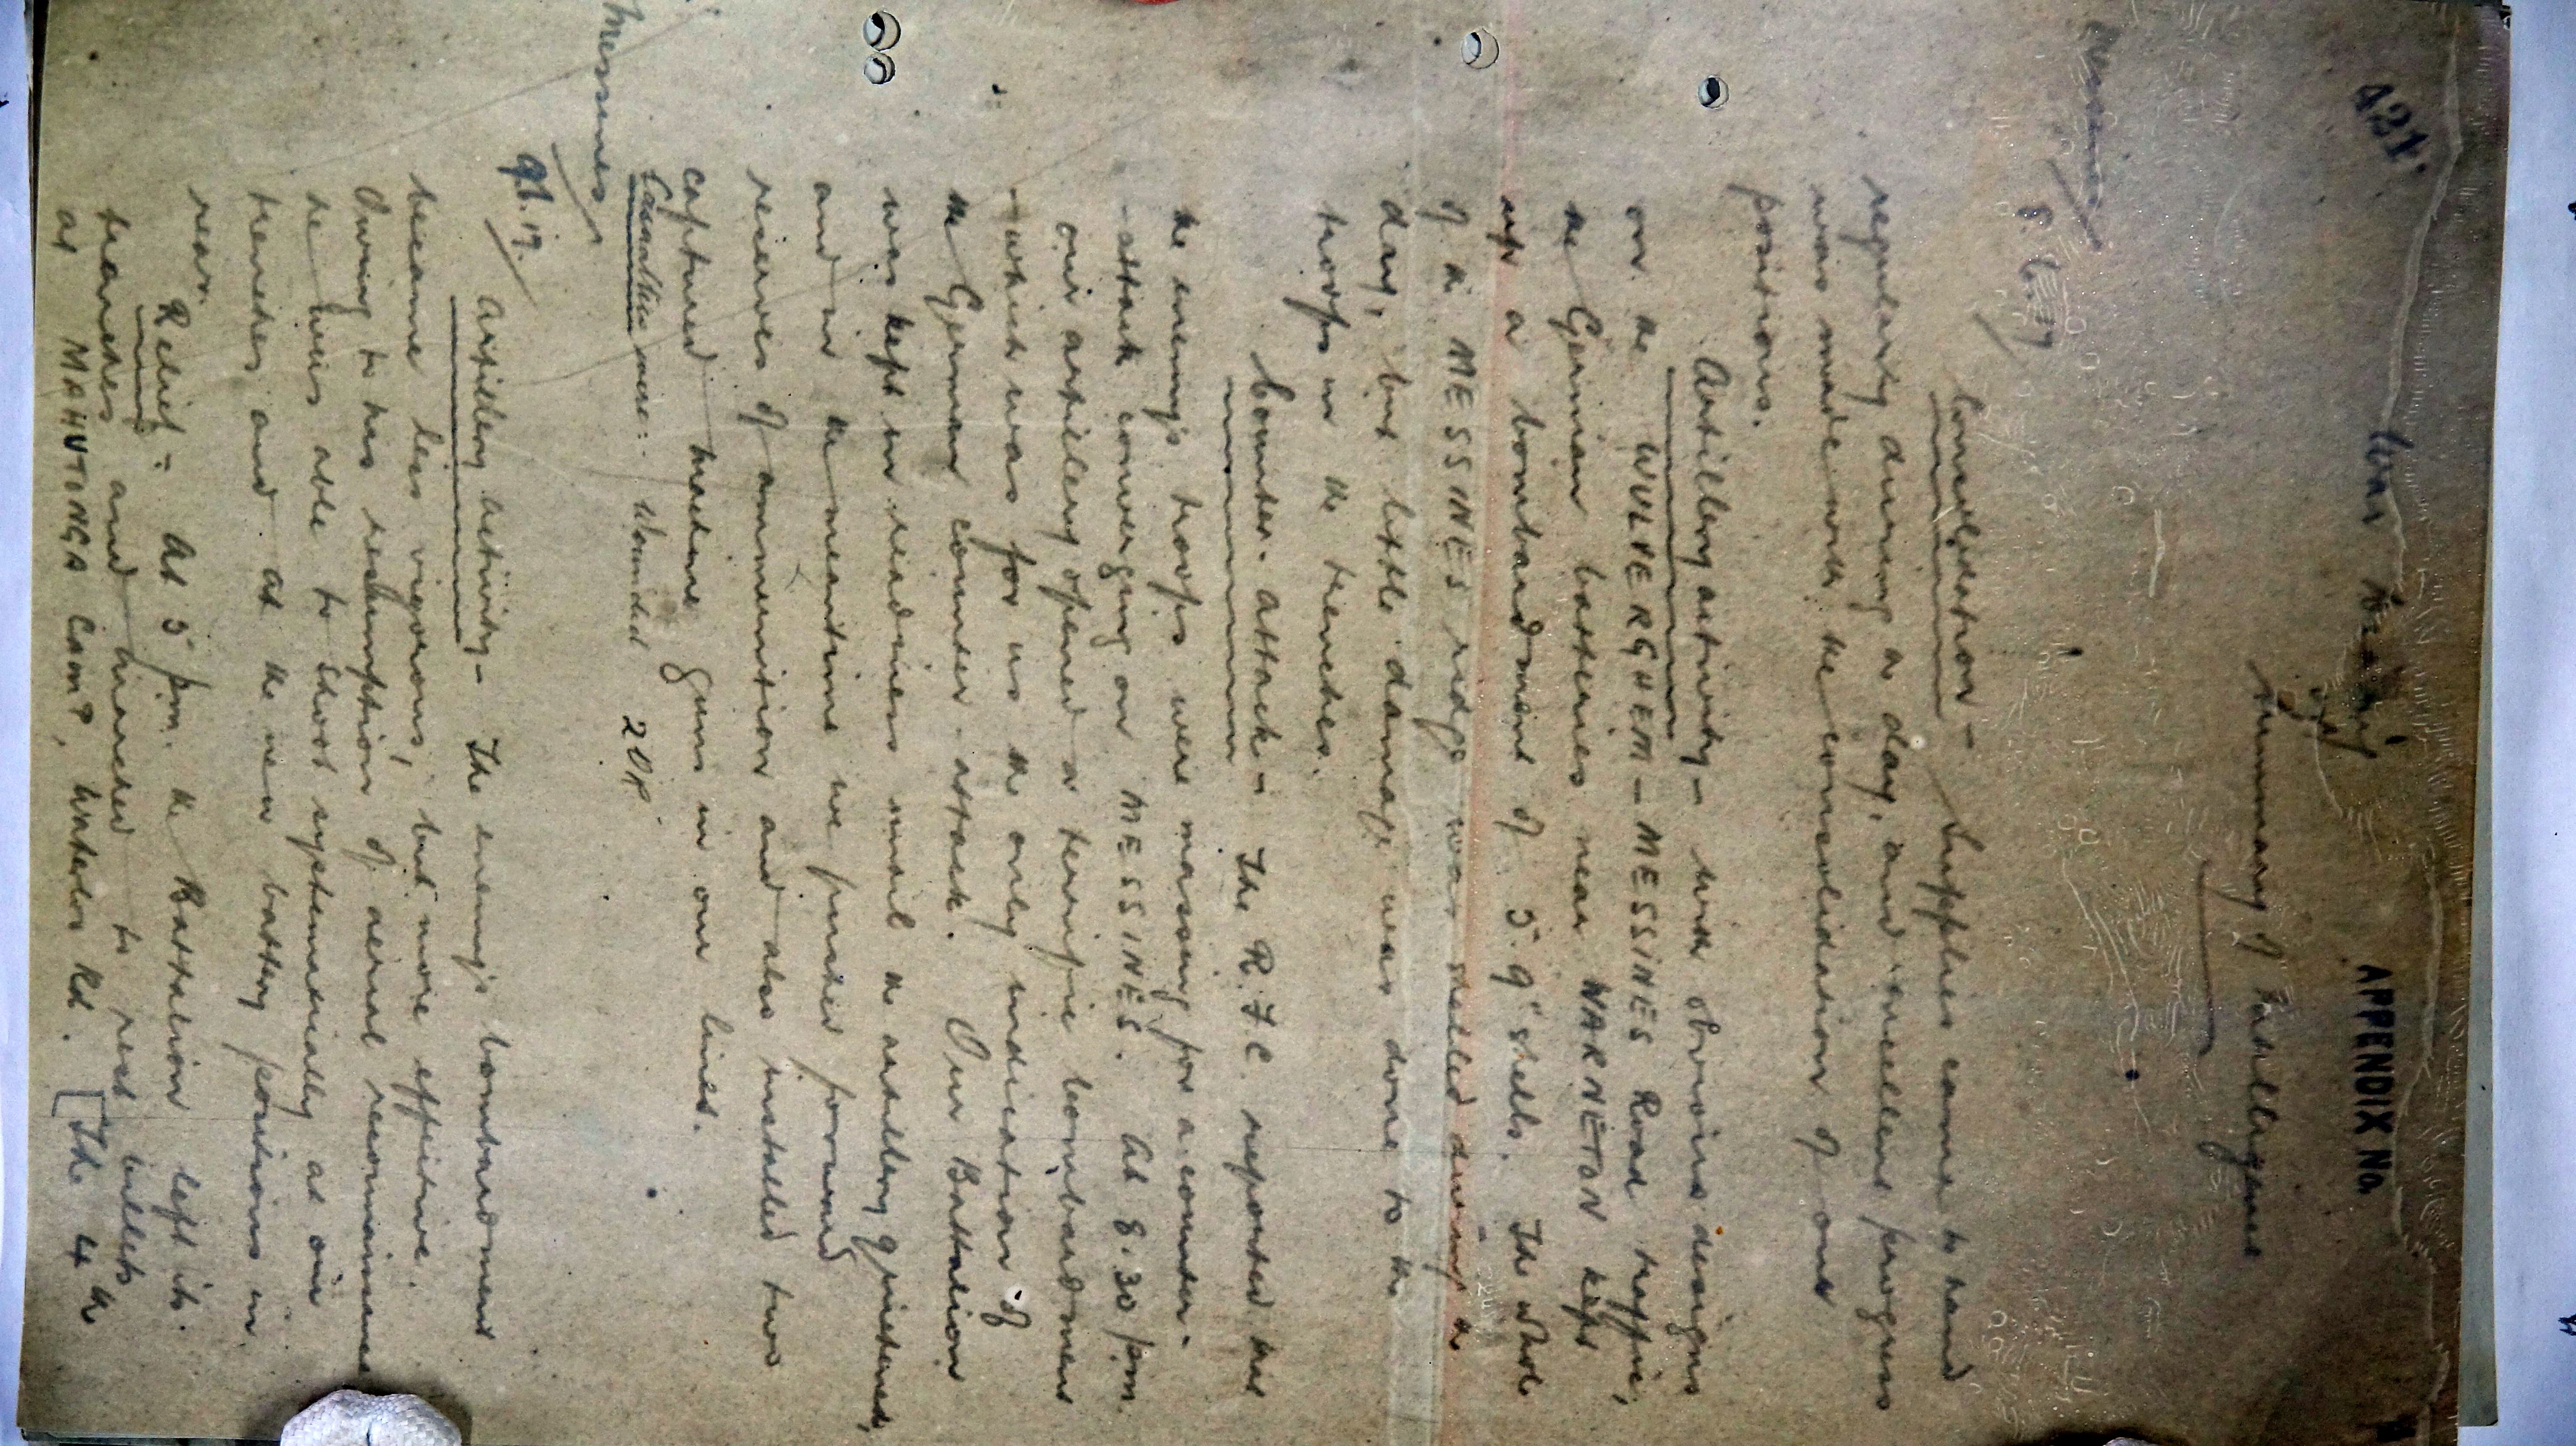 421.
War Diary
APPENDIX No.
of
Summary of Intelligence
Messines
8.6.17
Consolidation - Supplies came to hand
regularly during the day, and excellent progress
was made with the consolidation of our
positions.
Artillery activity - With obvious designs
on the WULVERGHEM - MESSINES Road traffic,
the German batteries near WARNETON kept
up a bombardment of 5.9" shells. The whole
of the MESSINES ridge was shelled during the
day, but little damage was done to the
troops in the trenches.
Counter-attack - The R.F.C. reported that
the enemy's troops were massing for a counter-
-attack converging on MESSINES. At 8.30 p.m.
our artillery opened a terrific bombardment
- which was for us the only indication of
the German counter-attack. Our Battalion
was kept in readiness until the artillery quietened,
and in the meantime we pushed forward
reserves of ammunition and also installed two
captured machine guns in our lines.
Casualties were:- Wounded 2 OR.
Messines
9.6.17.
Artillery activity - The enemy's bombardment
became less vigorous, but more effective.
Owing to his resumption of aerial reconnaissance
he was able to shoot systematically at our
trenches and at the new battery positions in
rear.
Relief - At 5 p.m. the Battalion left its
trenches and marched to rest billets
at MAHUTONGA Camp, Waterloo Rd. [The 4th